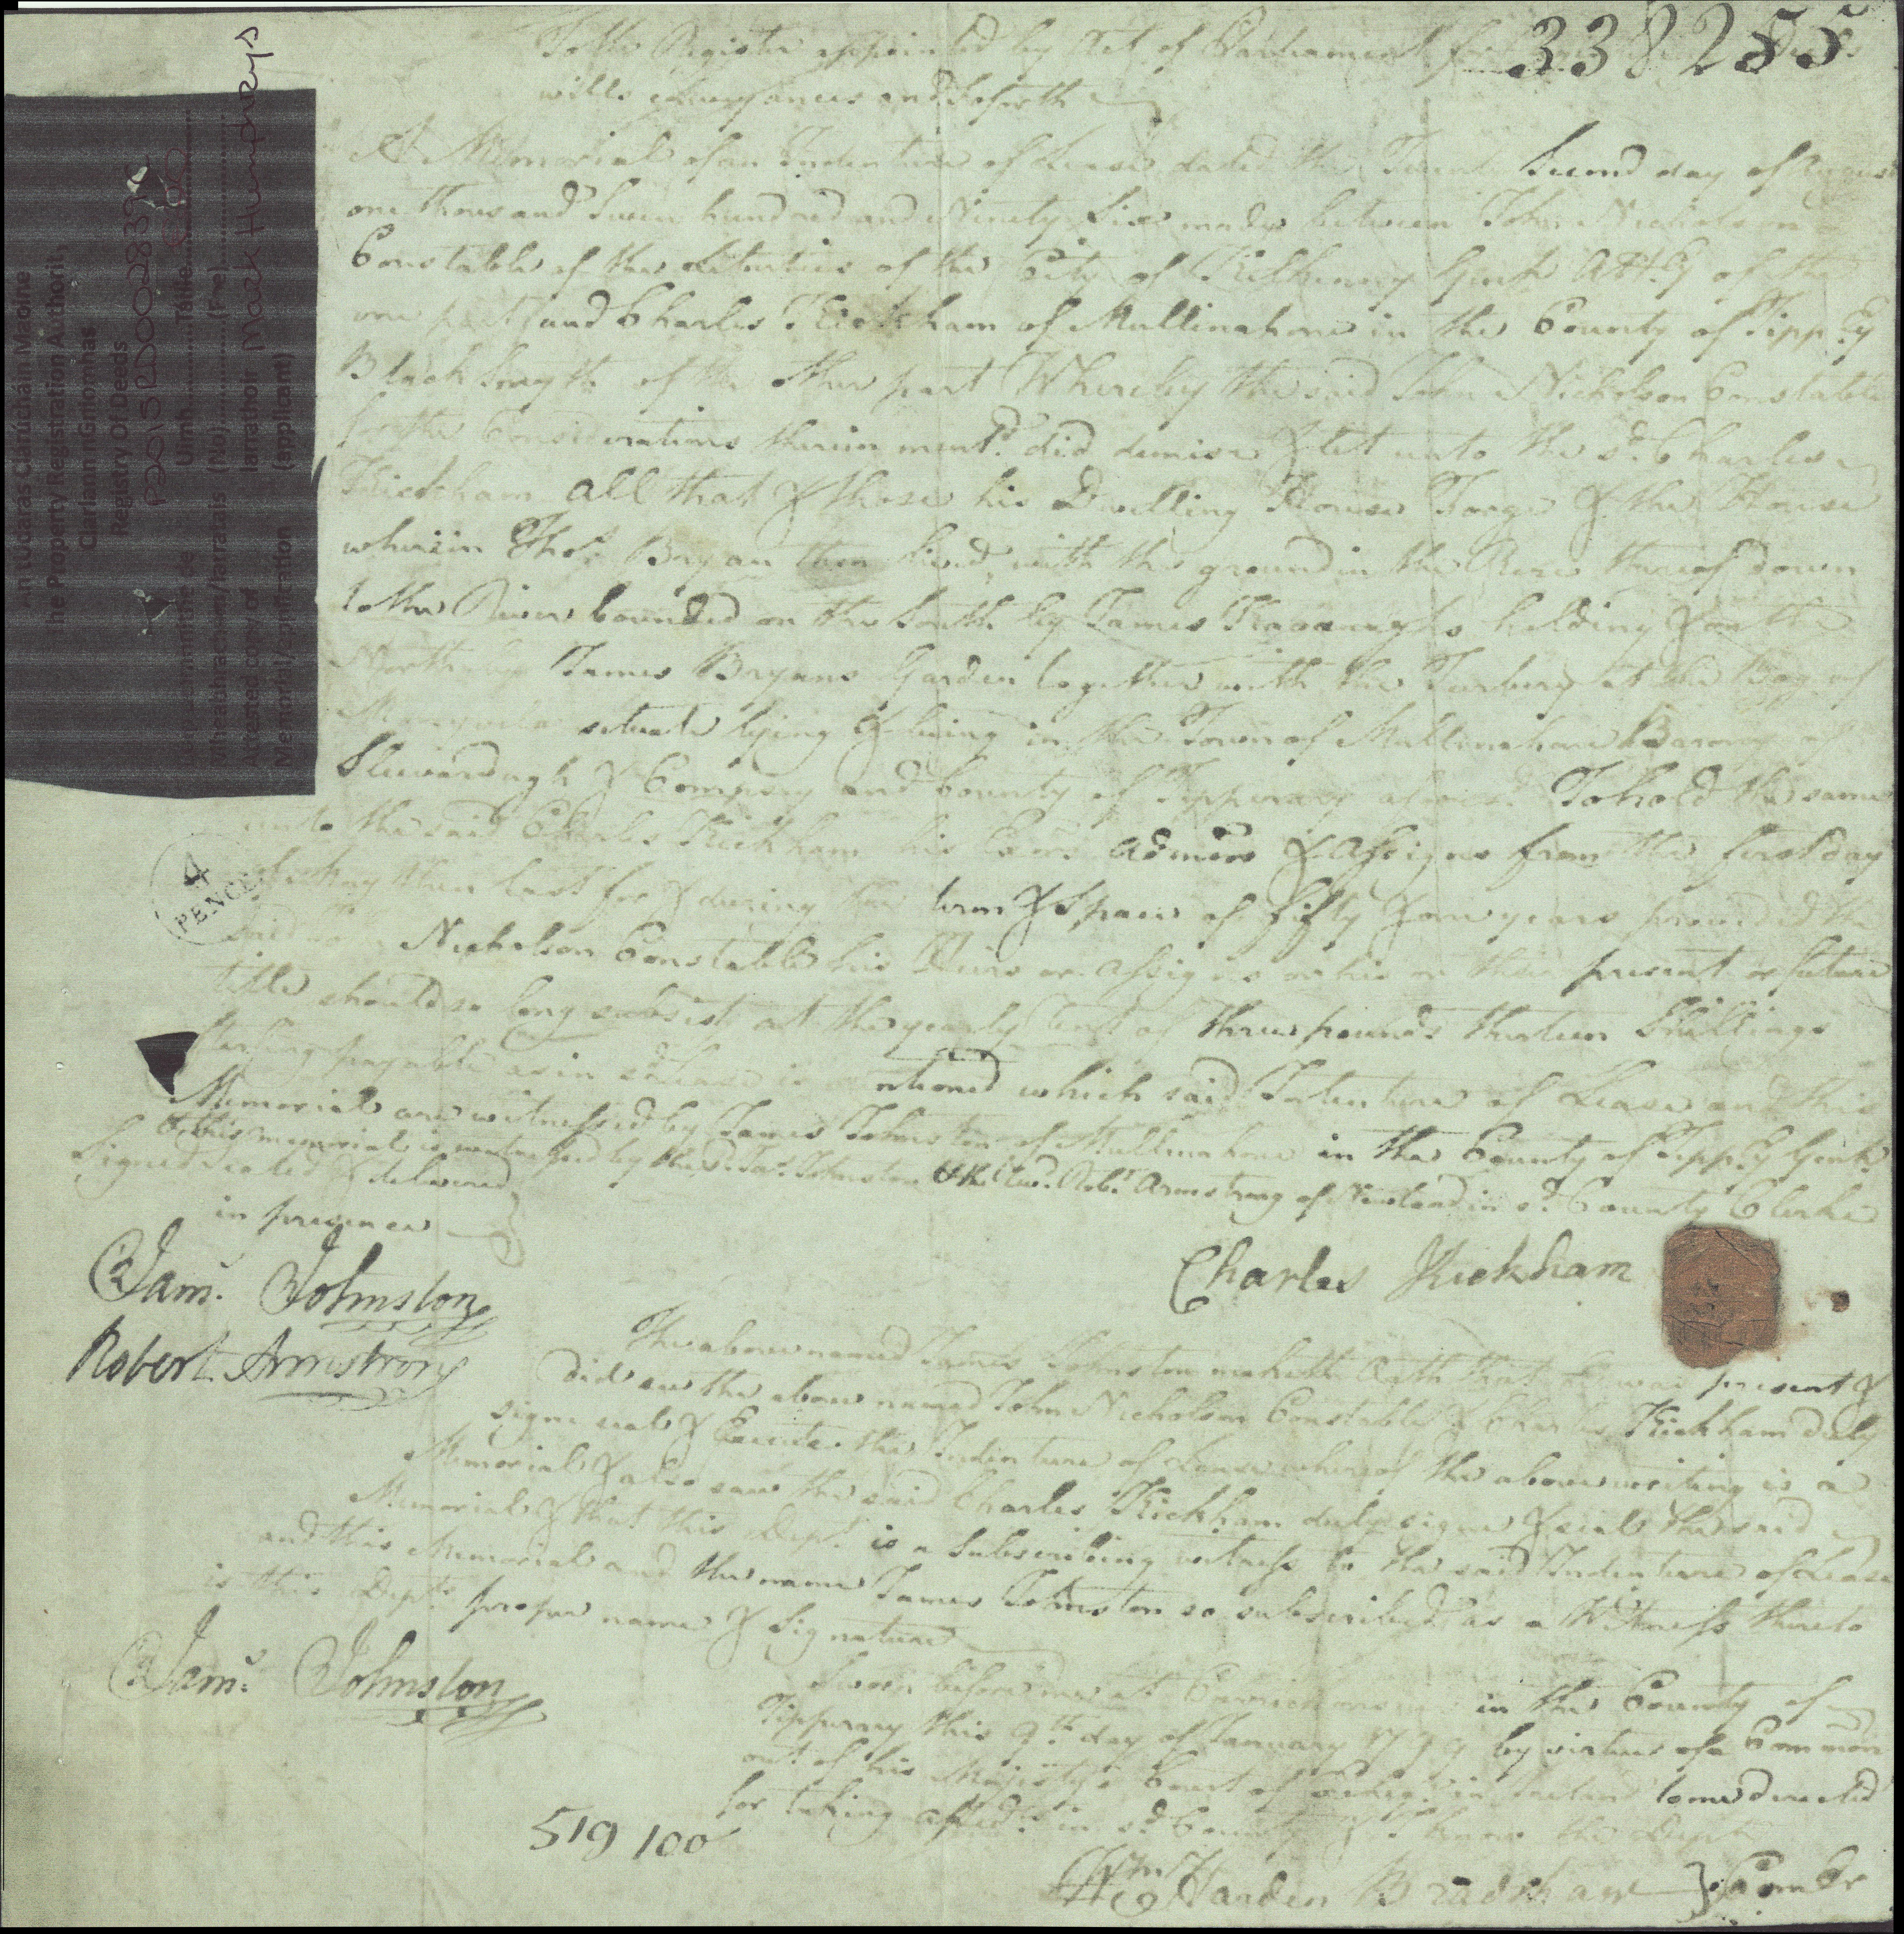 338255
To the Register appointed by Act of Parliament for
wills conveyances and so forth
A Memorial of an Indenture of Lease dated the Second day of August
one thousand Seven hundred and Ninety Six made between John Nicholson
Constable of the Liberties of the City of Kilkenny Gent Atty of the
one part and Charles Kickham of Mullinahone in the County of Tippy
Black Smyth of the other part Whereby the said John Nicholson Constable
for the Considerations therein mentd. did demise & let unto the sd. Charles
Kickham all that & those his Dwelling House Forge & the House
wherein Thos. Bryan then lived with the ground in the Rere thereof down
to the River bounded on the South by James Kavanaghs holding & on the
North by James Bryans Garden together with the Turbery at the Bog of
situate lying & being in the Town of Mullinahone Barony of
Sleivardagh & Compsey and County of Tipperary aforesd. To hold the same
unto the said Charles Kickham his Exrs. Admors & Assigns from the first day
of May then last for & during the term & space of fifty & one years provided the
said John Nicholson Constable his Heirs or Assigns or his or their present or future
title should so long subsist at the yearly rent of three pounds thirteen Shillings
Sterling payable as in sd. Lease is mentioned which said Indenture of Lease and this
Memorial are witnessed by James Johnston of Mullinahone in the County of Tippy Gent.
& this memorial is witnessed by the sd. Jas. Johnston & the Revd. Robt. Armstrong of in sd. County Clerke
Signed Sealed & delivered
in presence
Jams. Johnston
Robert Armstrong
Charles Kickham
The above named James Johnston maketh Oath that he was present &
did see the above named John Nicholson Constable & Charles Kickham duly
sign seal & Execute the Indenture of Lease whereof the above writing is a
Memorial & also saw the said Charles Kickham duly sign & seal the said
Memorial & that this Dept. is a Subscribing witness to the said Indenture of Lease
and this Memorial and the name James Johnston so subscribed as a Witness thereto
is this Depts. proper name & Signature
Jams. Johnston
Sworn before me at in the County of
Tipperary this 9th. day of January 1799 by virtue of a Common
out of his Majesty's Court of in Ireland to me directed
for taking affidts. in sd. County & I know the Dept
Wm Harden Bradshaw } Comr
519 100
4
PENCE
An tÚdarás Clárúcháin Maoine
The Property Registration Authority
Clárlann na nGníomhas
Registry Of Deeds
Uimh. Táille
Mheabhrachain/Iarratais (No) (Fee)
Attested copy of Iarrathóir Mark Humphrys
Memorial/Application (applicant)